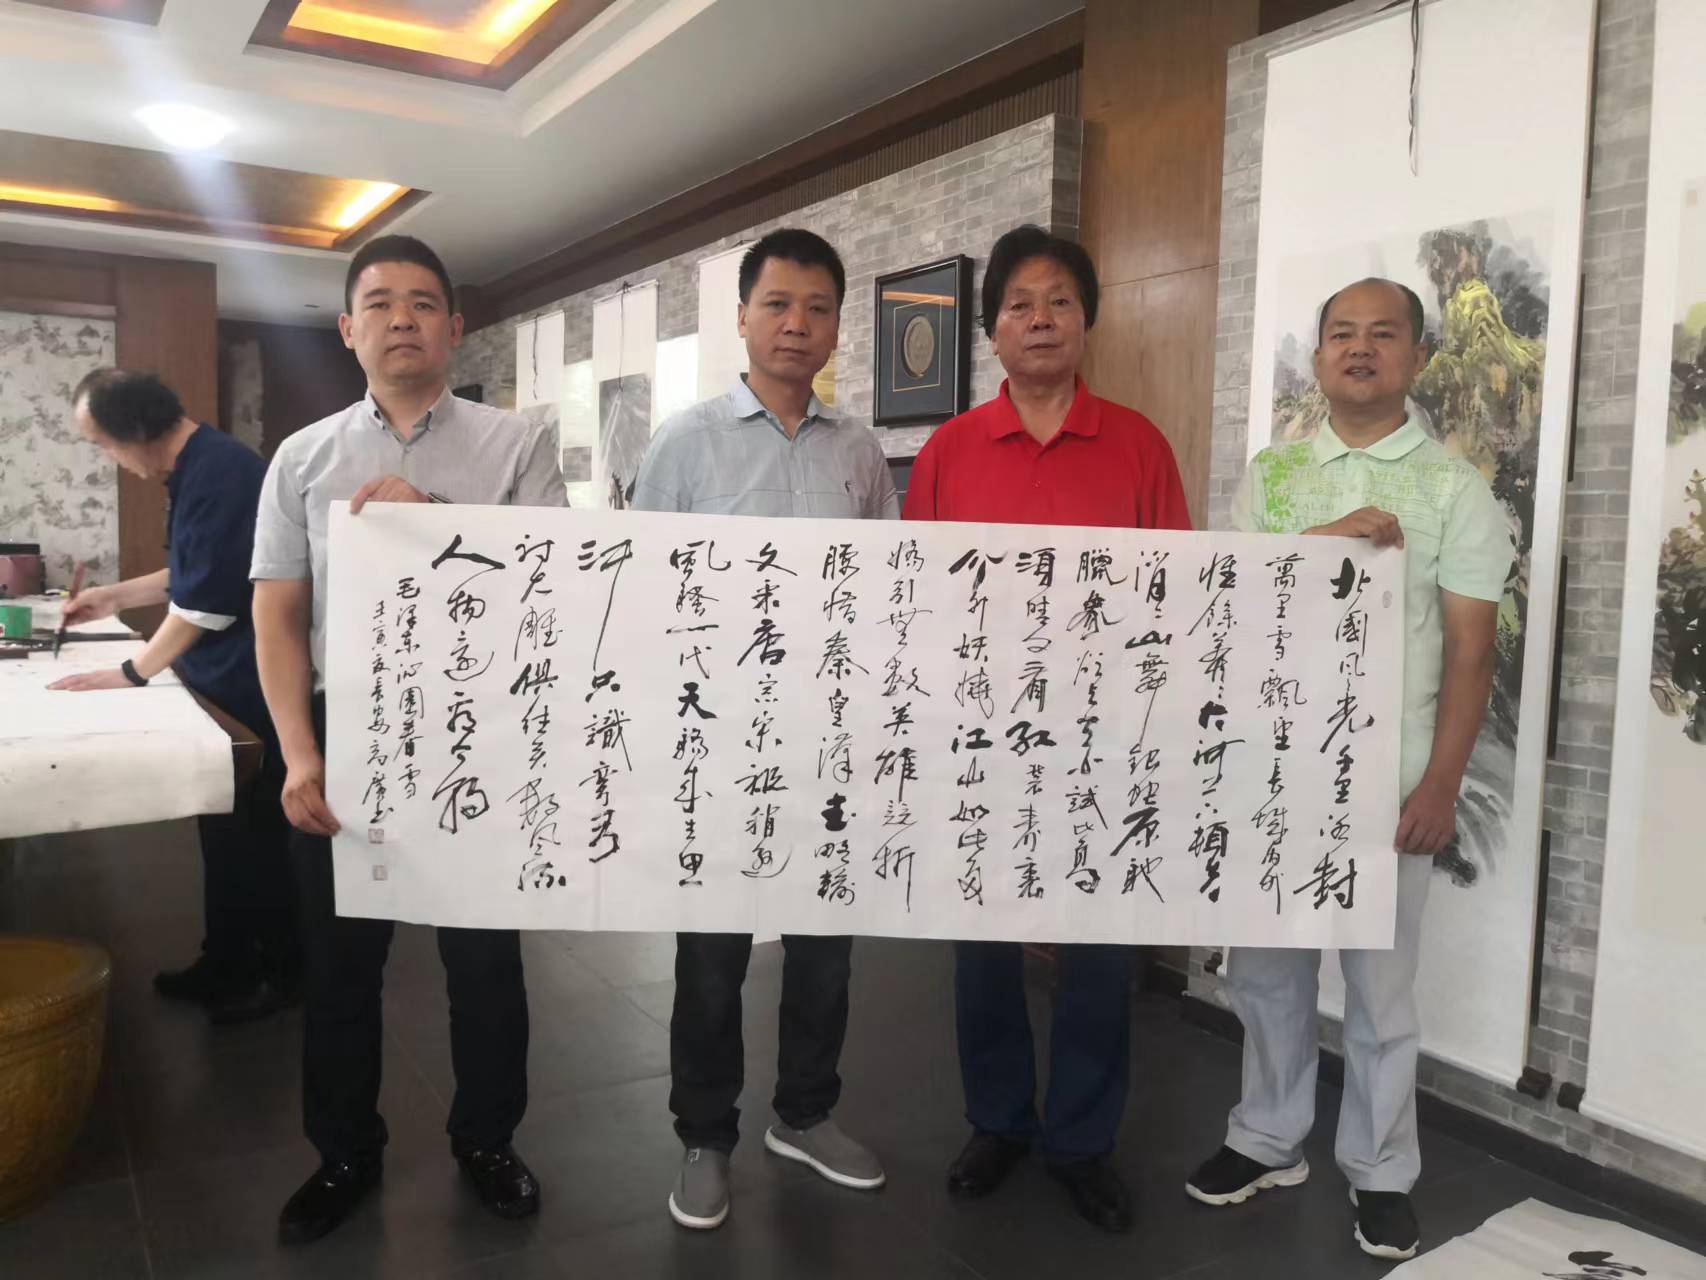 北國风光千里冰封
萬里雪飄望長城内外
惟餘莽〻大河上下頓失
滔〻山舞銀蛇原馳
臘象欲與天公試比高
須晴日看紅裝素裹
分外妖嬈江山如此多
嬌引無數英雄競折
腰惜秦皇漢武略輸
文采唐宗宋祖稍遜
風騷一代天驕成吉思
汗只識彎弓
射大雕俱往矣數风流
人物還看今朝
毛澤東沁園春雪
壬寅夏長安高廣書